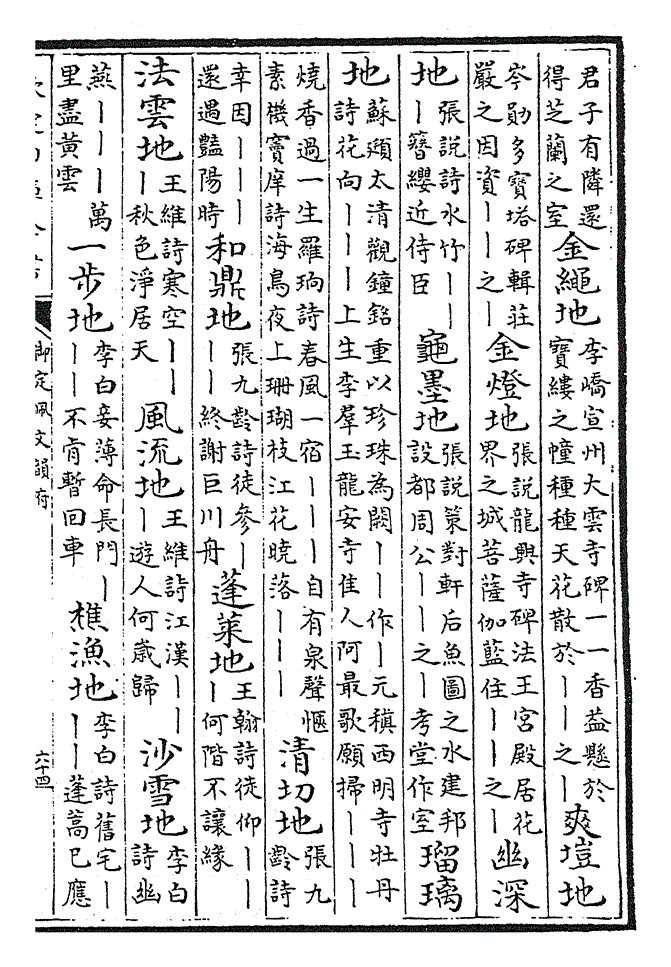 君子有隣還
得芝蘭之室
金繩地
李嶠宣州大雲寺碑一一香葢懸於
寶縷之幢種種天花散於｜｜之｜
爽塏地
岑勛多寶塔碑輯莊
嚴之因資｜｜之｜
金燈地
張說龍興寺碑法王宮殿居花
界之城菩薩伽藍住｜｜之｜
幽深
地
張說詩水竹｜｜
｜簪纓近侍臣
龜墨地
張說策對軒后魚圖之水建邦
設都周公｜｜之｜考堂作室
瑠璃
地
蘇頲太清觀鐘銘重以珍珠為闕｜｜作｜元稹西明寺牡丹
詩花向｜｜｜上生李羣玉龍安寺佳人阿最歌願掃｜｜｜
燒香過一生羅珦詩春風一宿｜｜｜自有泉聲愜
素機竇庠詩海鳥夜上珊瑚枝江花曉落｜｜｜
清切地
張九
齡詩
幸因｜｜｜
還過豔陽時
和鼎地
張九齡詩徒參｜
｜｜終謝巨川舟
蓬萊地
王翰詩徒仰｜｜
｜何階不讓緣
法雲地
王維詩寒空｜｜
｜秋色淨居天
風流地
王維詩江漢｜｜
｜遊人何歲歸
沙雪地
李白
詩幽
燕｜｜｜萬
里盡黃雲
一步地
李白妾薄命長門｜
｜｜不肯暫回車
樵漁地
李白詩舊宅｜
｜｜蓬蒿已應
御定佩文韻府
六十四